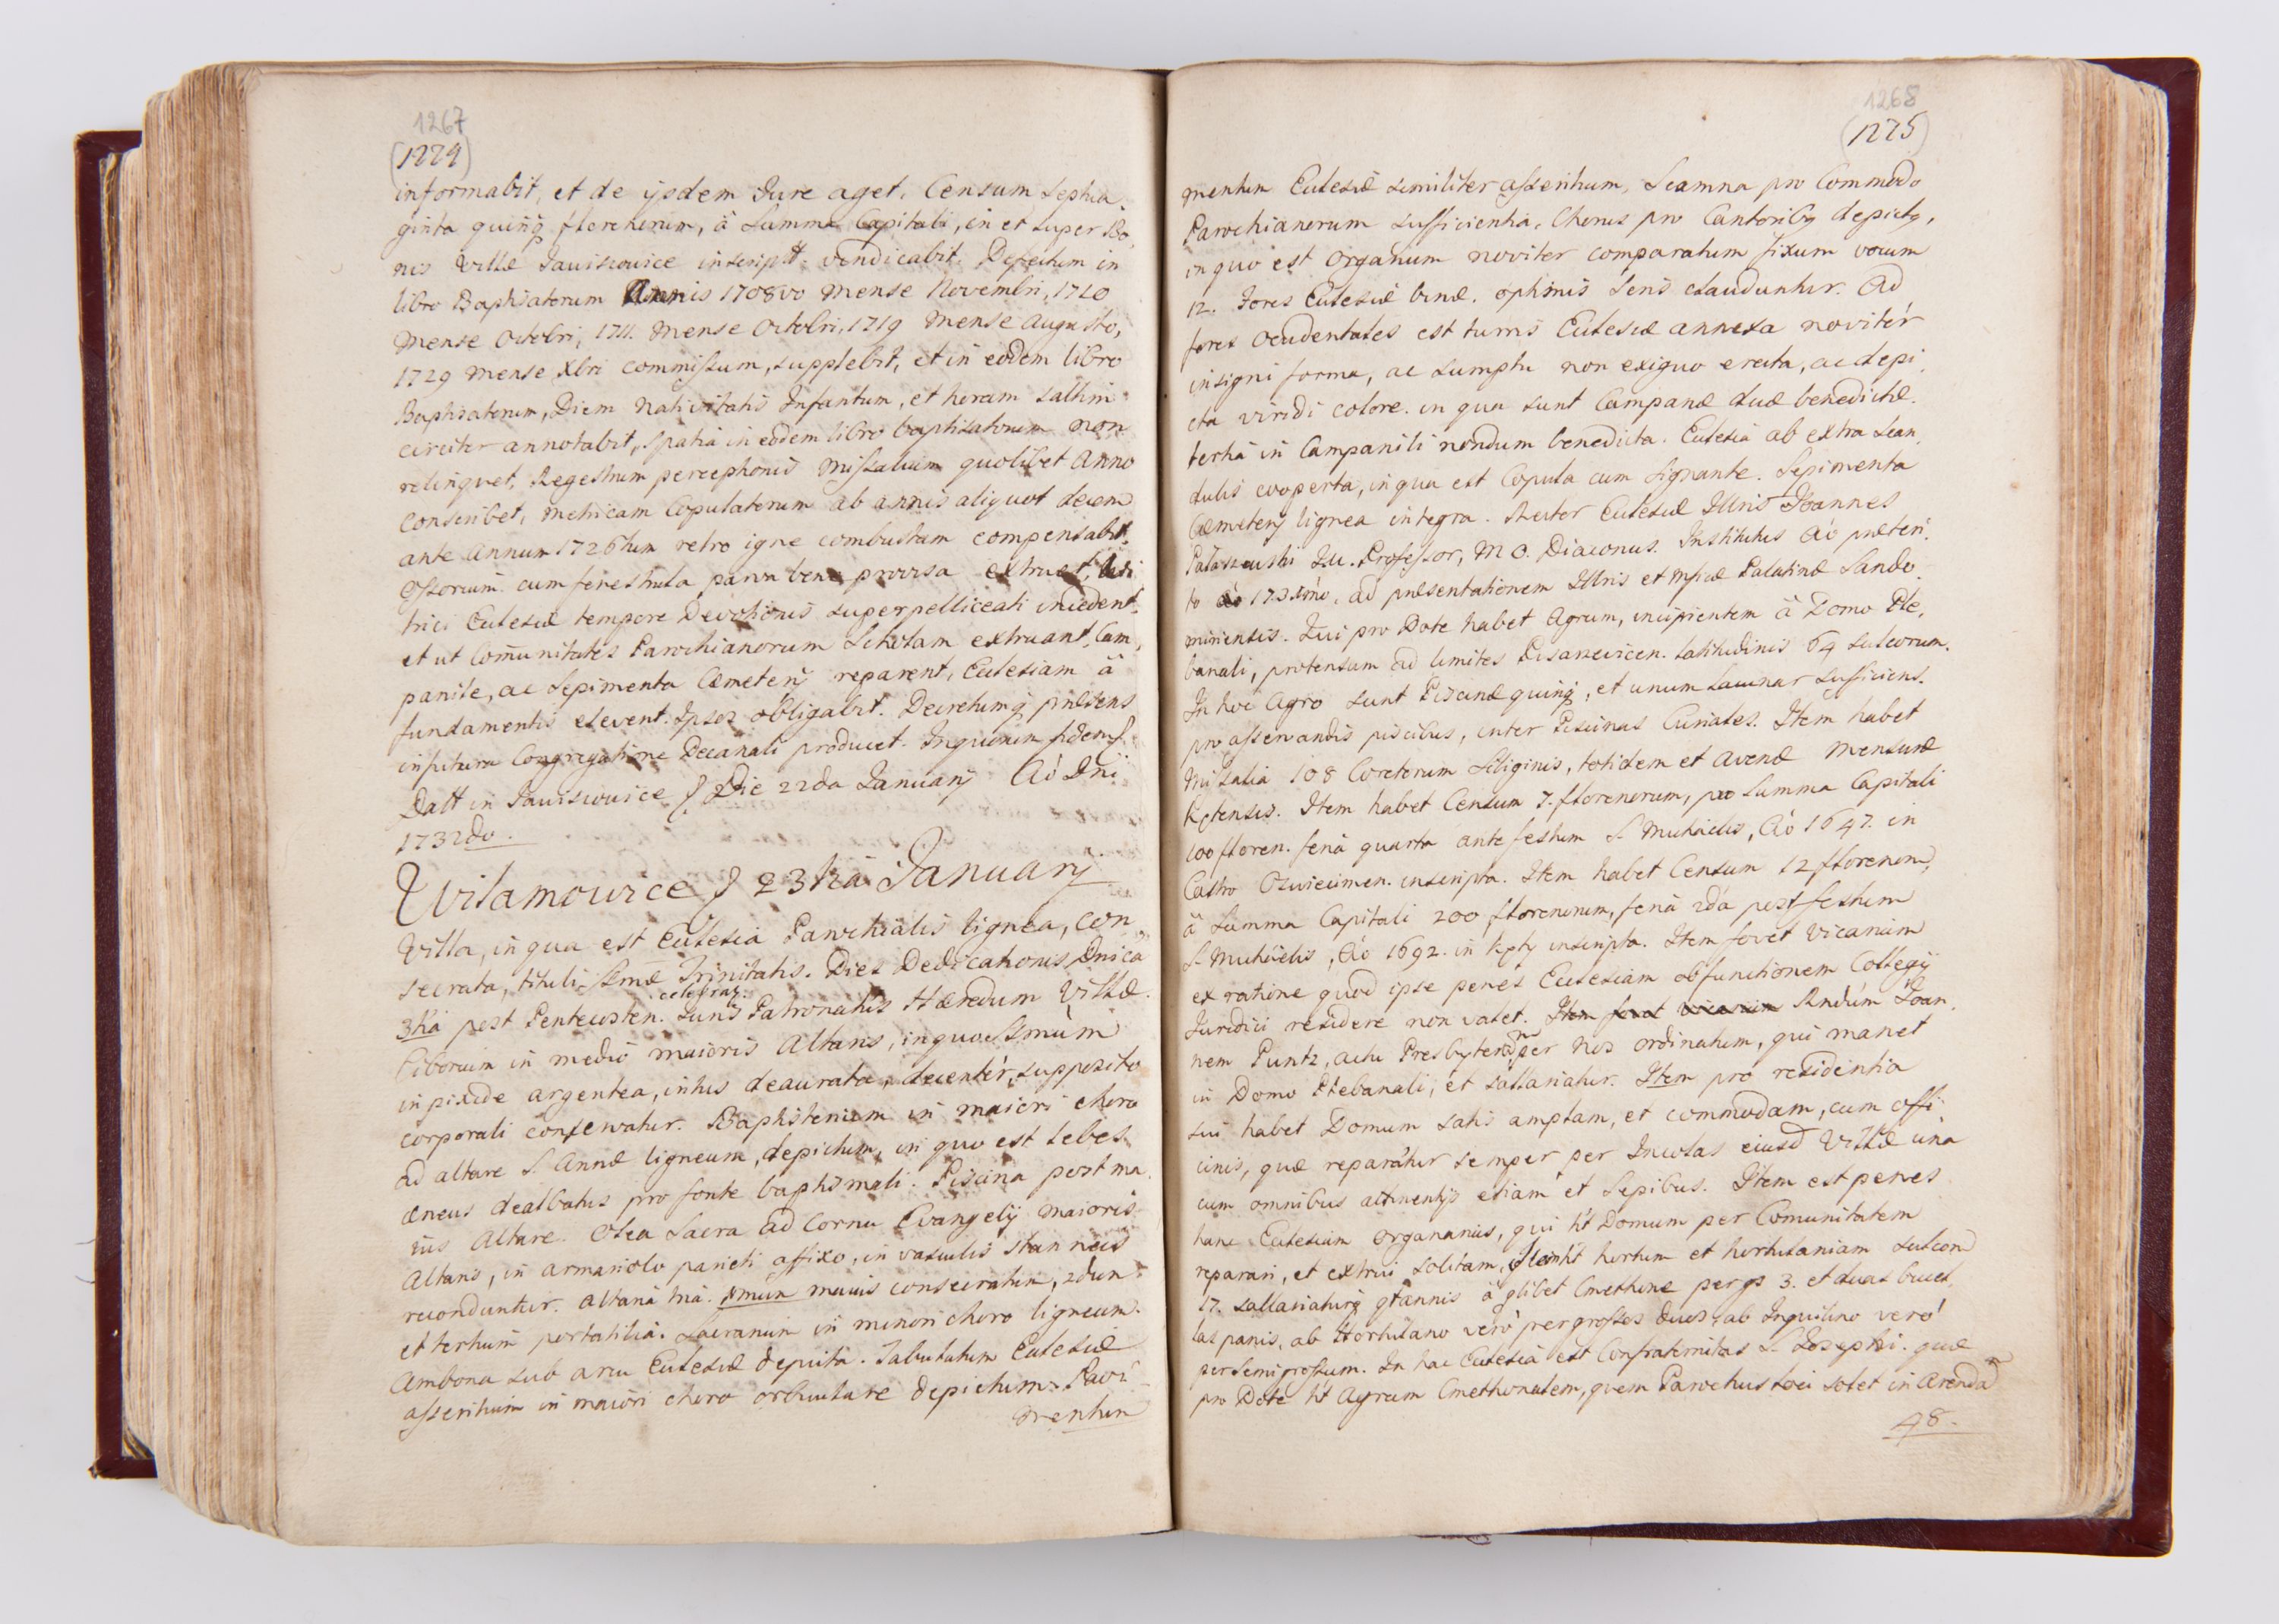 1267
(1274)
informabit, et de ijsdem Jure aget. Censum Septua
ginta quinq florenorum, à Summa Capitali, in et super Bo
nis Villæ Jawiszowice inscript. vendicabit. Defectum in
libro Baptisatorum Annis 1708vo Mense Novembri, 1710
Mense Octobri, 1711. Mense Octobri, 1719 Mense Augusto,
1729 Mense Xbri commissum, supplebit, et in eodem libro
Baptisatorum, Diem Nativitatis Infantum, et horam saltim
circiter annotabit, spatia in eodem libro baptisatorum non
relinquet, Regestrum perceptionis Missalium quolibet Anno
conscribet, Metricam Copulatorum ab annis aliquot decem
ante Annum 1726tum retro igne combustam compensabit.
Ossorium cum fenestrula parva bene provisa extruat,
trici Ecclesiæ tempore Devotionis superpelliceati incedent
et ut Comunitates Parochianorum Scholam extruant, Cam
panile, ac Sepimenta Cæmeterij reparent, Ecclesiam à
fundamentis elevent. Ipsos obligabit. Decretumq præsens
in futura Congregatione Decanali producet. In quorum fidem
Datt in Jawiszowice Die 22da Januarij Aó Dni
1732do.
Wilamowice 23tia Januarij
Villa, in qua est Ecclesia Parochialis lignea, con
secrata, tituli SSmæ Trinitatis. Dies Dedicationis Dnica
3tia post Pentecosten. celebrat. Juris Patronatus Hæredum Villæ.
Ciborium in medio maioris Altaris, in quo SSmum
in pixide argentea, intus deaurata, decenter, supposito
corporali conservatur. Baptisterium in maiori choro
ad altare S. Annæ ligneum, depictum, in quo est lebes
æneus dealbatus pro fonte baptismali. Piscina post ma
ius Altare. Olea Sacra ad Cornu Evangelij maioris
Altaris, in armariolo parieti affixo, in vasculis stanneis
reconduntur. Altaria tria. 1mum maius consecratum, 2dum
et tertium portatilia. Sacrarium in minori choro ligneum.
Ambona sub arcu Ecclesiæ depicta. Tabulatum Ecclesiæ
asseritium in maiori choro orbiculare depictum. Pavi
mentum
1268
(1275)
mentum Ecclesiæ similiter asseritium, Scamna pro Commodo
Parochianorum sufficientia, Chorus pro Cantoribq depictq,
in quo est Organum noviter comparatum fixum vocum
12. Fores Ecclesiæ binæ. optimis Seris clauduntur. Ad
fores Occidentales est turris Ecclesiæ annexa noviter
insigni forma, ac sumptu non exiguo erecta, ac depi
cta viridi colore. in qua sunt Campanæ duæ benedictæ.
tertia in Campanili nondum benedicta. Ecclesia ab extra Scan
dulis cooperta, in qua est Copula cum Signante. Sepimenta
Cæmeterij lignea integra. Rector Ecclesiæ Illris Joannes
Pataszewski Professor, M O. Diaconus. Institutus Aó præteri
to 1731mo, ad præsentationem Illris et Mficæ Palatinæ Sando
miriensis. Qui pro Dote habet Agrum, incipientem à Domo Ple
banali, protensum ad limites Pisarzovicen. latitudinis 64 sulcorum.
In hoc Agro sunt Piscinæ quinq, et unum Lacunar sufficiens.
pro asservandis piscibus, inter Piscinas Curiales. Item habet
Missalia 108 Coretorum Siliginis, totidem et Avenæ Mensuræ
Kętensis. Item habet Censum 7. florenorum, pro Summa Capitali
100 floren. feria quarta ante festum S. Michaelis, Aó 1647. in
Castro Oswiecimen. inscripta. Item habet Censum 12 florenorum,
à Summa Capitali 200 florenorum, feria 2da post festum
S. Michaelis, Aó 1692. in Kęty inscripta. Item fovet Vicarium
ex ratione quod ipse penes Ecclesiam ob functionem Collegij
Juridici residere non valet. Item fovet vicarium Rndum Joan
nem Puntz, actu Presbyterum per Nos ordinatum, qui manet
in Domo Plebanali, et sallariatur. Item pro residentia
sui habet Domum satis amplam, et commodam, cum offi
cinis, quæ reparatur semper per Incolas eiusd Villæ una
cum omnibus attinentijs etiam et Sepibus. Item est penes
hanc Ecclesiam Organarius, qui ht Domum per Comunitatem
reparari, et extrui solitam, Item ht hortum et hortulaniam sulcon
17. sallariaturq qtannis à qlibet Cmethone per gs 3. et duas bucel
las panis, ab Hortulano vero per grossos duos, ab Inquilino vero
per semigrossum. In hac Ecclesia est Confraternitas S. Josephi. quæ
pro Dote ht Agrum Cmethonalem, quem Parochus loci solet in Arenda
48.